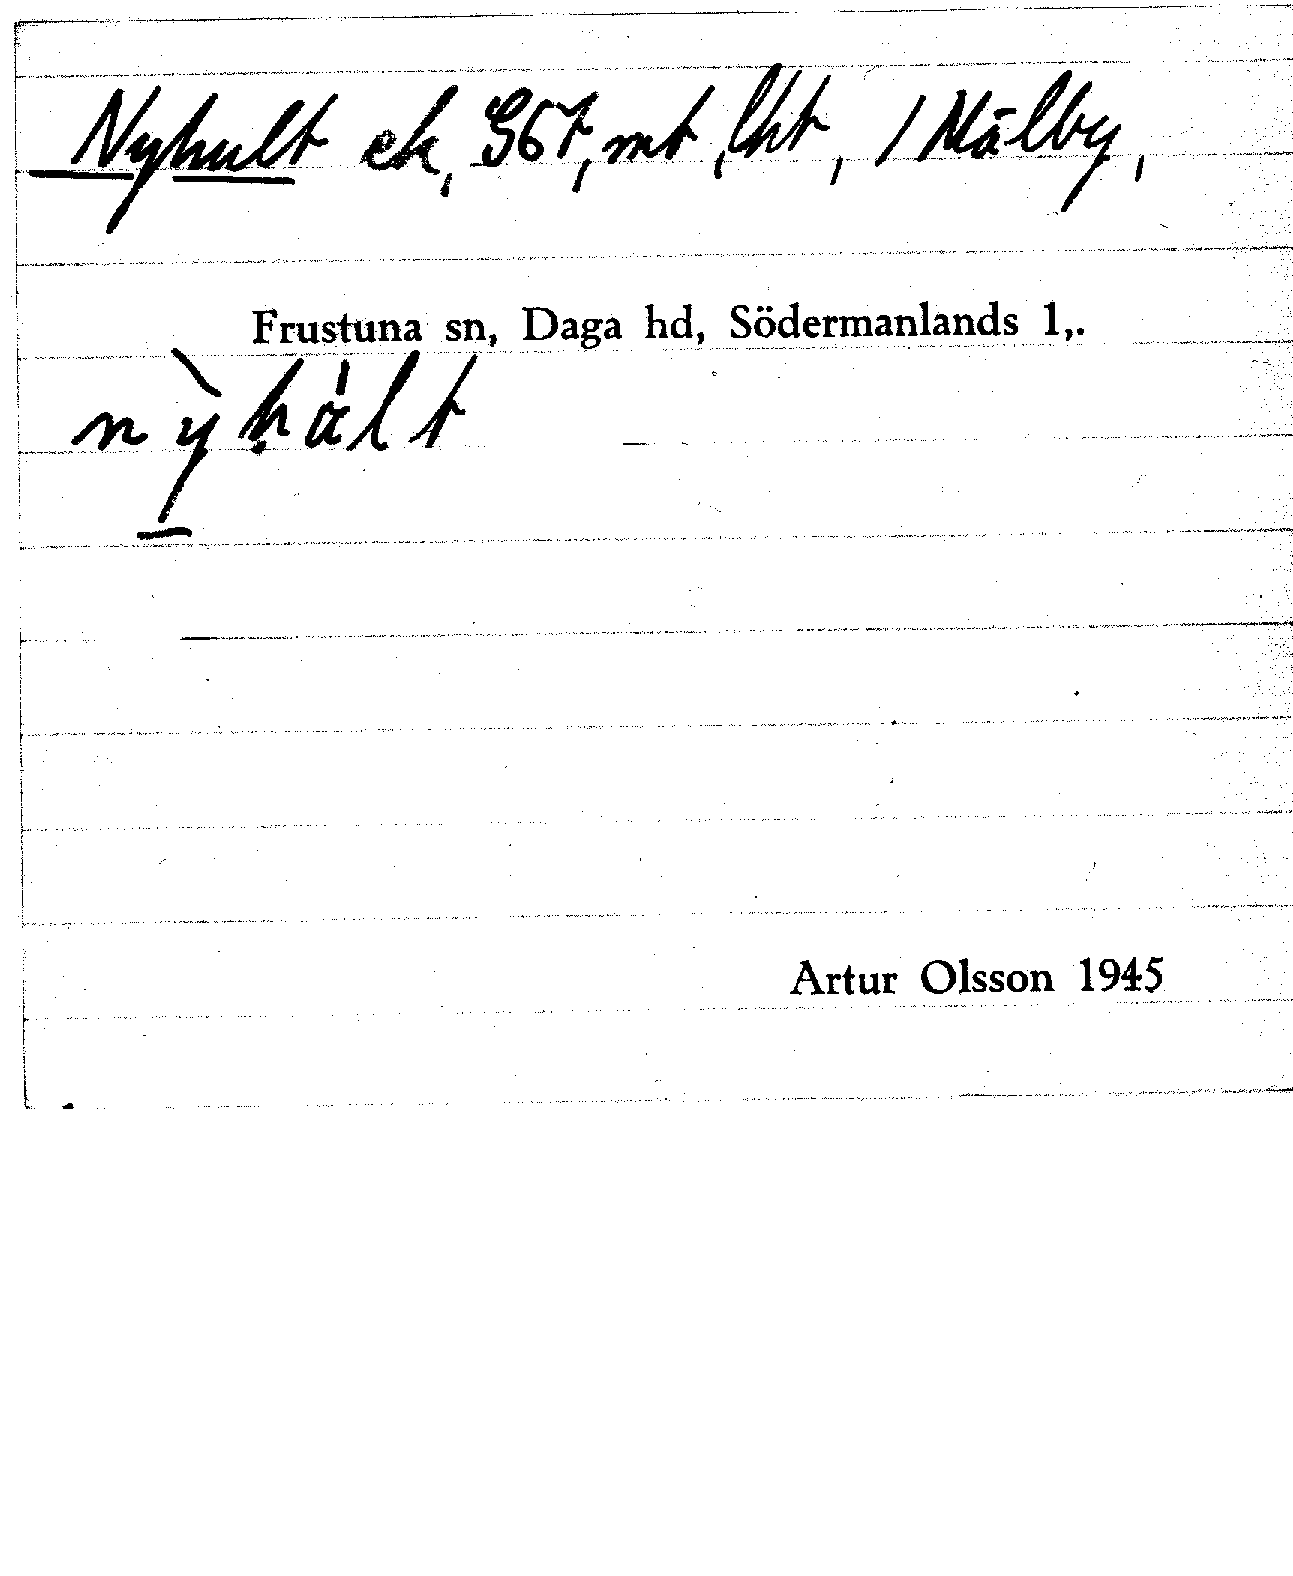 Nyhult ek, G6T, mt, lht, / Mälby,
Frustuna sn, Daga hd, Södermanlands l,.
nỳhált
Artur Olsson 1945